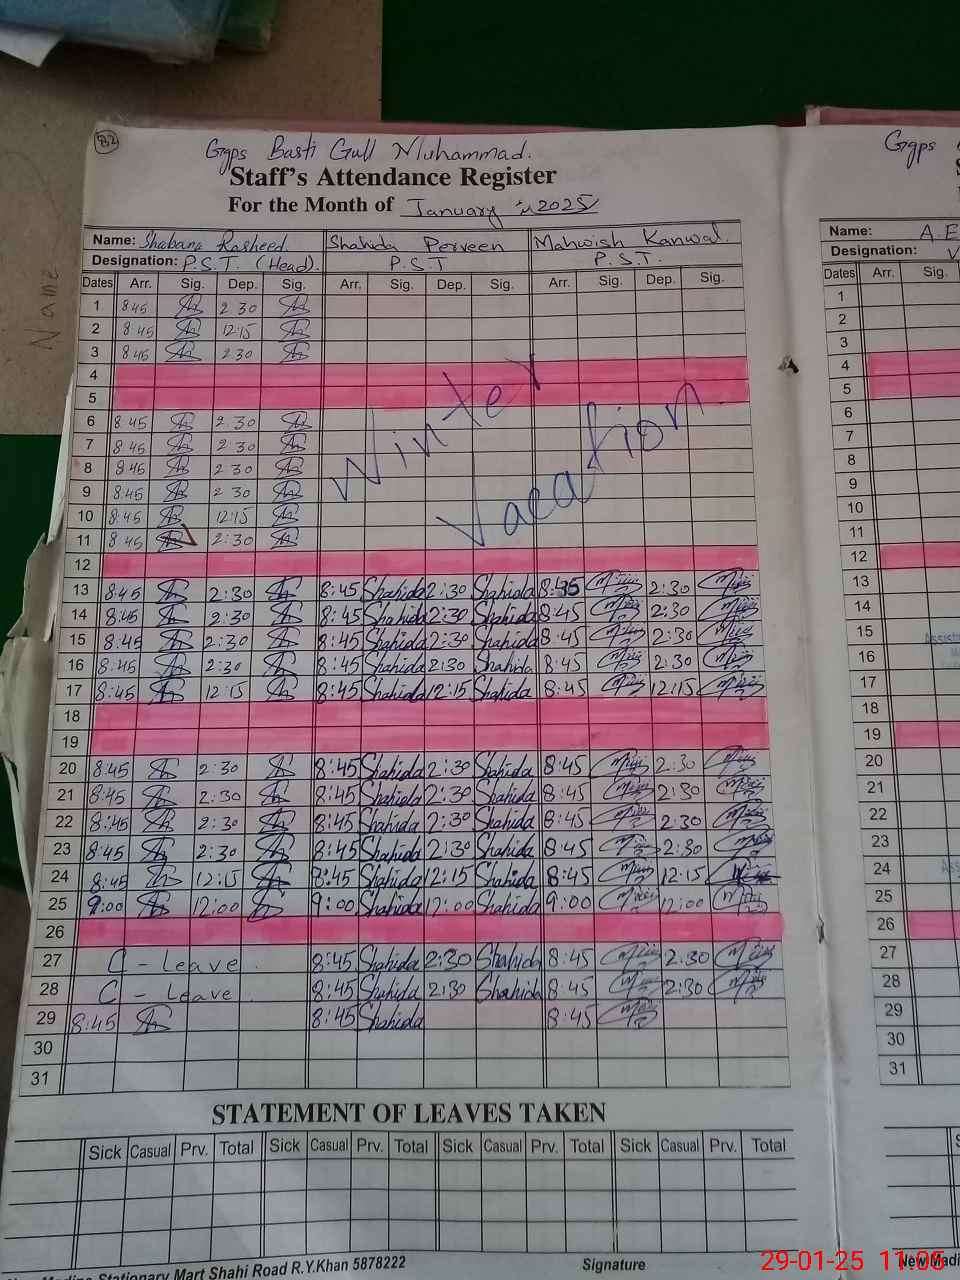 132
Ggps Basti Gull Muhammad.
Ggps
Staff's Attendance Register
For the Month of January 2025
Name: Shabana Rasheed Shahida Perveen Mahwish Kanwal.
Designation: P.S.T. (Head). P.S.T P.S.T.
Dates Arr. Sig. Dep. Sig. Arr. Sig. Dep. Sig. Arr. Sig. Dep. Sig.
1 8:45 2:30
2 8:45 12:15
3 8:45 2:30
4
5
Winter Vacation
6 8:45 2:30
7 8:45 2:30
8 8:45 2:30
9 8:45 2:30
10 8:45 12:15
11 8:45 2:30
12
13 8:45 2:30 8:45 Shahida 2:30 Shahida 8:45 2:30
14 8:45 2:30 8:45 Shahida 2:30 Shahida 8:45 2:30
15 8:45 2:30 8:45 Shahida 2:30 Shahida 8:45 2:30
16 8:45 2:30 8:45 Shahida 2:30 Shahida 8:45 2:30
17 8:45 12:15 8:45 Shahida 12:15 Shahida 8:45 12:15
18
19
20 8:45 2:30 8:45 Shahida 2:30 Shahida 8:45 2:30
21 8:45 2:30 8:45 Shahida 2:30 Shahida 8:45 2:30
22 8:45 2:30 8:45 Shahida 2:30 Shahida 8:45 2:30
23 8:45 2:30 8:45 Shahida 2:30 Shahida 8:45 2:30
24 8:45 12:15 8:45 Shahida 12:15 Shahida 8:45 12:15
25 9:00 12:00 9:00 Shahida 12:00 Shahida 9:00 12:00
26
27 C - Leave. 8:45 Shahida 2:30 Shahida 8:45 2:30
28 C - Leave. 8:45 Shahida 2:30 Shahida 8:45 2:30
29 8:45 8:45 Shahida 8:45
30
31
STATEMENT OF LEAVES TAKEN
Sick Casual Prv. Total Sick Casual Prv. Total Sick Casual Prv. Total Sick Casual Prv. Total
Stationary Mart Shahi Road R.Y.Khan 5878222 Signature
Name: A.E
Designation:
Dates Arr. Sig.
1
2
3
4
5
6
7
8
9
10
11
12
13
14
15
16
17
18
19
20
21
22
23
24
25
26
27
28
29
30
31
New Madi
Name
29-01-25 11:05